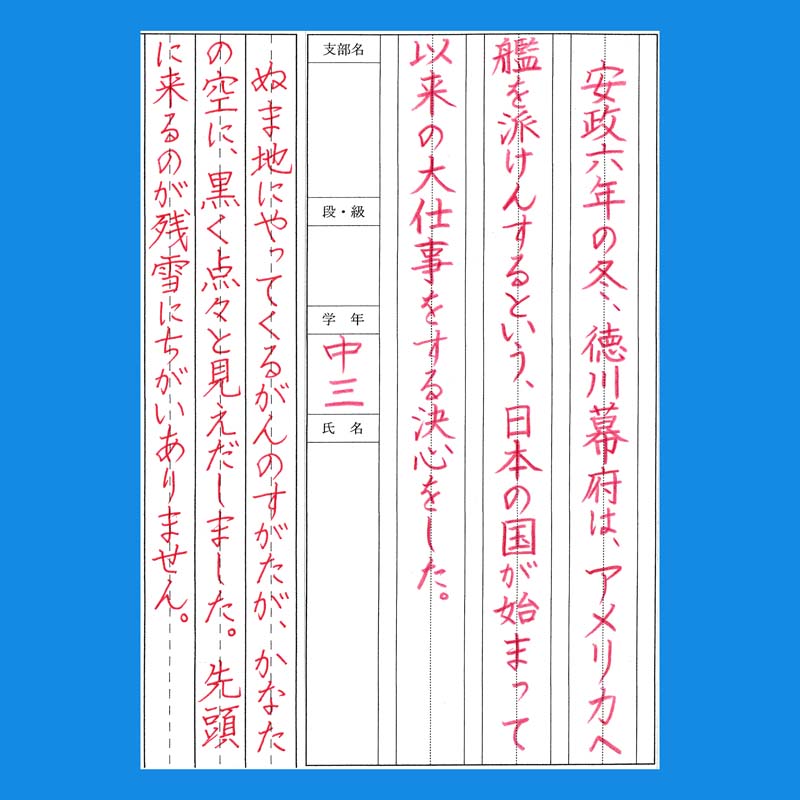 安政六年の冬、徳川幕府は、アメリカへ
艦を派けんするという、日本の国が始まって
以来の大仕事をする決心をした。
支部名
段・級
学年
中三
氏名
ぬま地にやってくるがんのすがたが、かなた
の空に、黒く点々と見えだしました。先頭
に来るのが残雪にちがいありません。